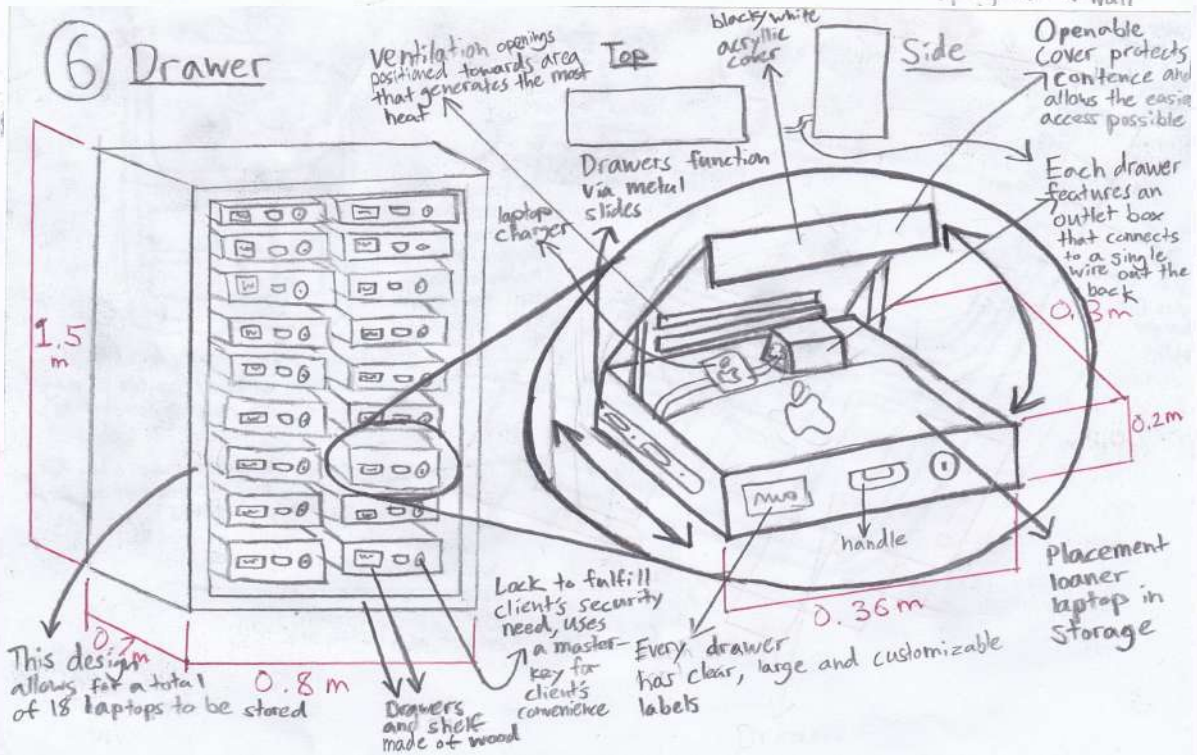 wall
6 Drawer
Ventilation openings
positioned towards area
that generates the most
heat
Top
black/white
acryllic
cover
Side
Openable
Cover protects
contence and
allows the easies
access possible
Drawers function
via metal
slides
laptop
charger
Each drawer
features an
outlet box
that connects
to a single
wire out the
back
1.5
m
0.3m
0.2m
handle
0.36m
Placement
loaner
laptop in
storage
0.8m
This design
allows for a total
of 18 laptops to be stored
Drawers
and shelf
made of wood
Lock to fulfill
client's security
need, uses
a master-
key for
client's
convenience
Every drawer
has clear, large and customizable
labels